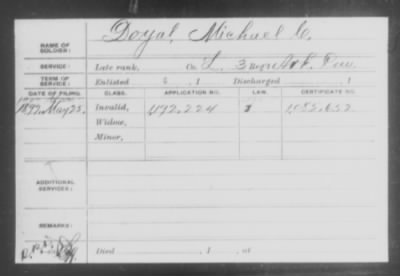 NAME OF SOLDIER: Doyal, Michael C.
SERVICE: Late rank, Co. L, 3 Reg't
TERM OF SERVICE: Enlisted , 1 Discharged , 1
DATE OF FILING. CLASS. APPLICATION NO. LAW. CERTIFICATE NO.
May 25. Invalid, 1,192,224 1,082,652
Widow,
Minor,
ADDITIONAL SERVICES:
REMARKS:
Died , 1 , at